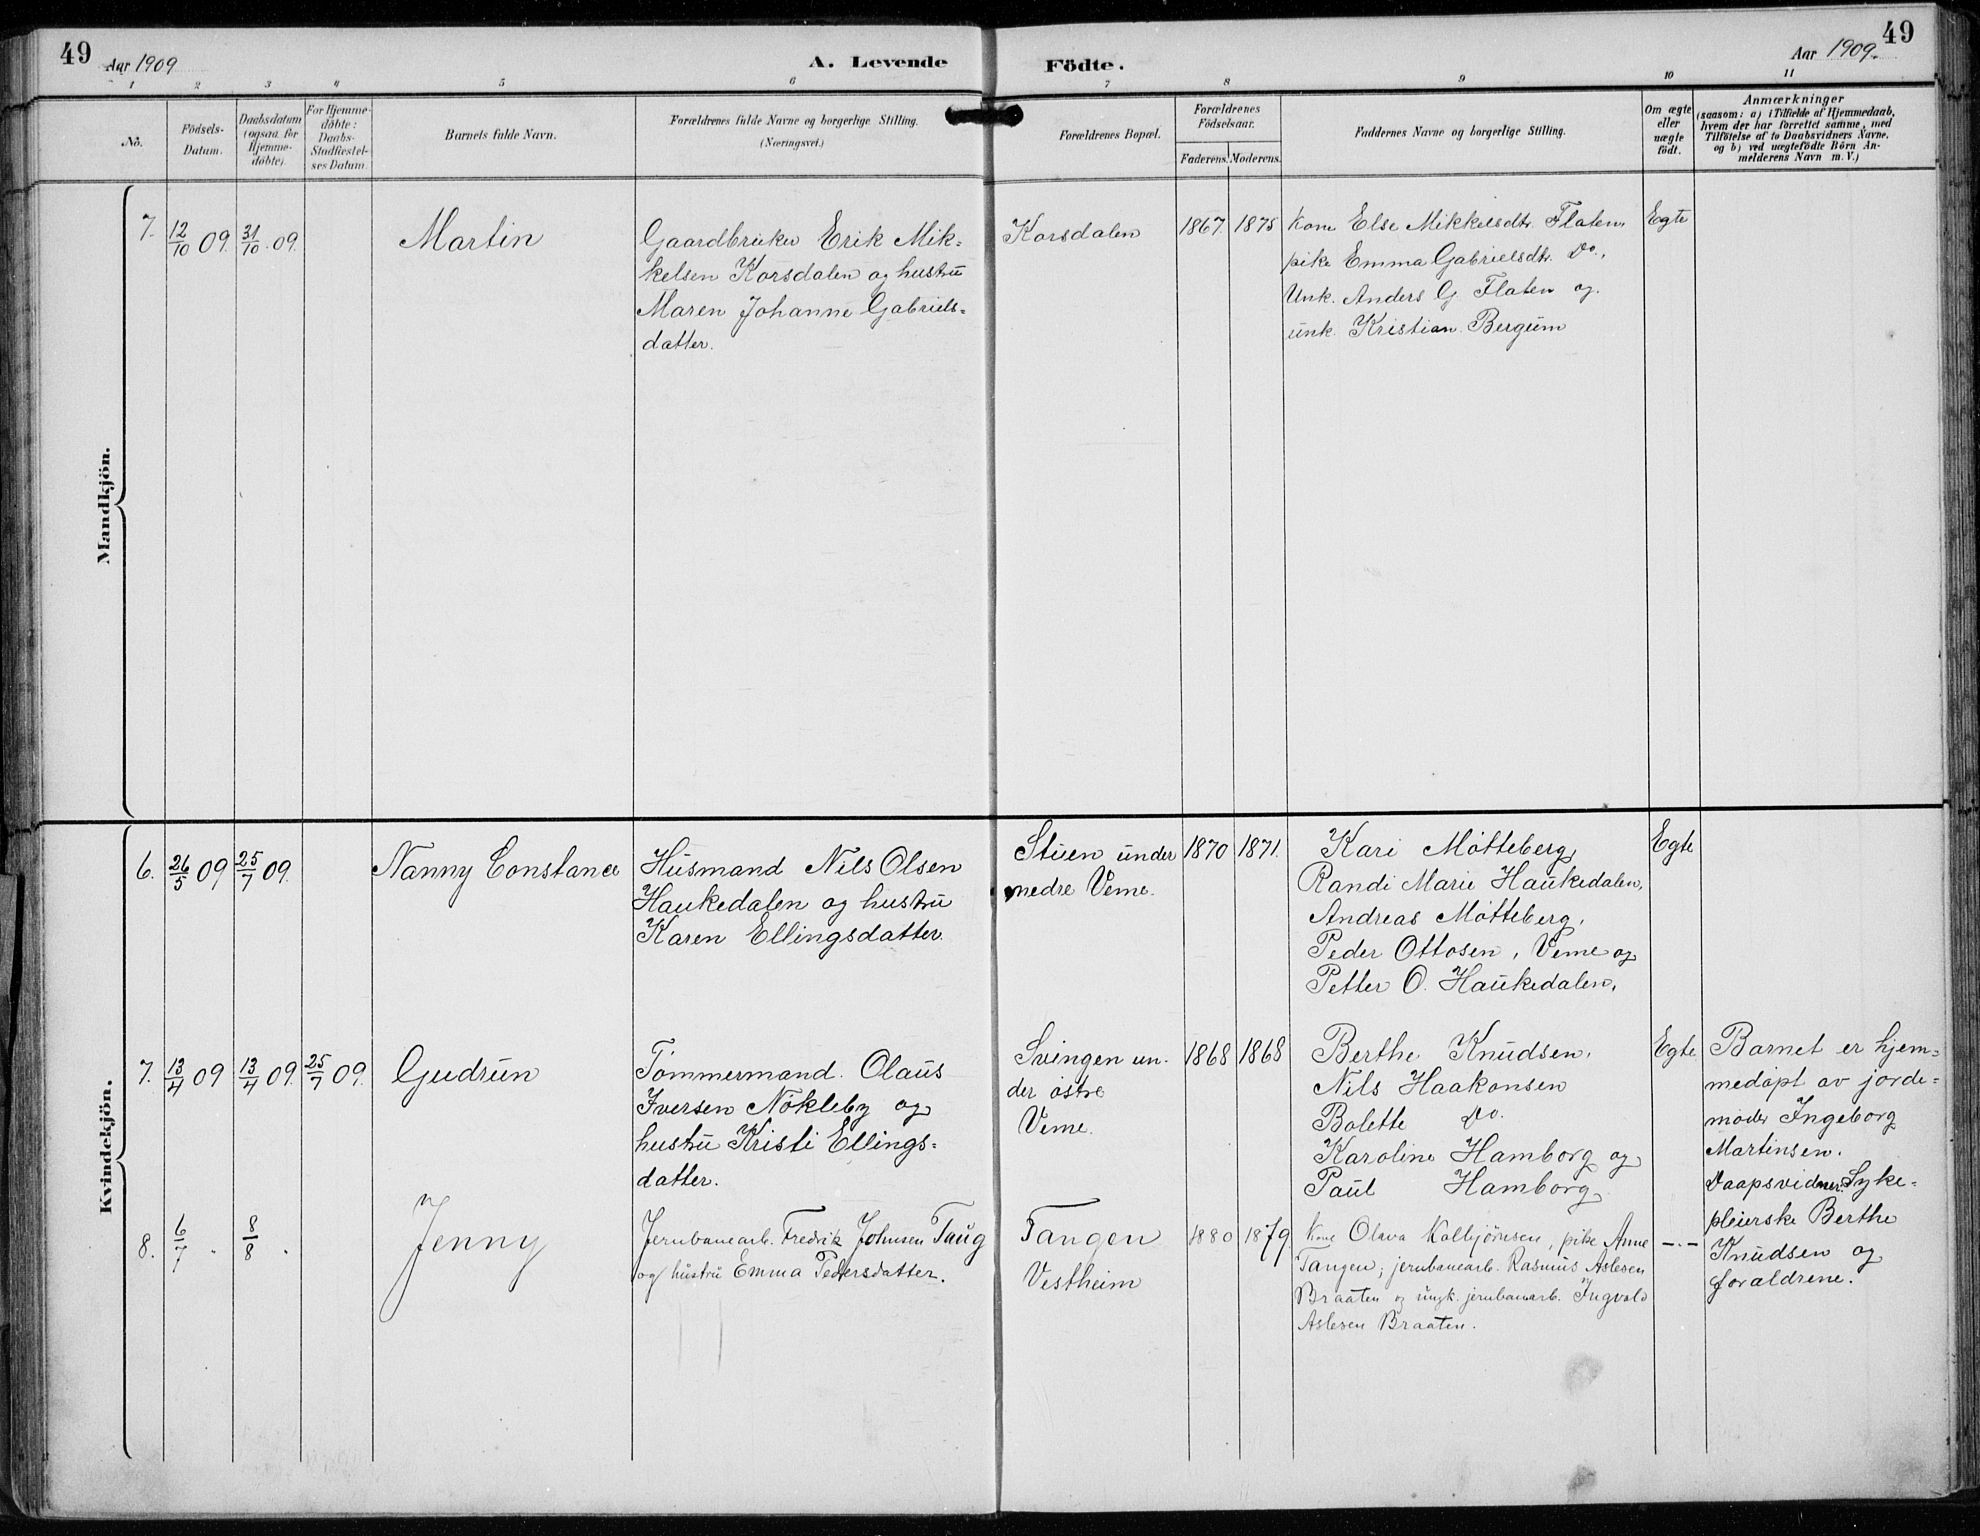 49
Aar 1909
A. Levende
Födte.
Aar 1909.
49
1 2 3 4 5 6 7 8 9 10 11
No.
Födsels-
Datum.
Daabsdatum
(ogsaa for
Hjemme-
döbte).
For Hjemme-
döbte:
Daabs-
Stadfæstel-
ses Datum.
Barnets fulde Navn.
Forældrenes fulde Navne og borgerlige Stilling.
(Næringsvei.)
Forældrenes Bopæl.
Forældrenes
Födselsaar.
Faderens. Moderens.
Faddernes Navne og borgerlige Stilling.
Om ægte
eller
uægte
födt.
Anmærkninger
(saasom: a) i Tilfælde af Hjemmedaab,
hvem der har forrettet samme, med
Tilföielse af to Daabsvidners Navne.
og b) ved uægtefödte Börn An-
melderens Navn m. V.)
Mandkjön.
7. 12/10 09. 31/10 09. Martin
Gaardbruker Erik Mik-
kelsen Korsdalen og hustru
Maren Johanne Gabriels-
datter.
Korsdalen
1867. 1875
Kone Else Mikkelsdtr. Flaten,
pike Emma Gabrielsdtr. Do.,
Unk. Anders G. Flaten og
unk. Kristian Bergum
Egte
Kvindekjön.
6. 26/5 09 25/7 09. Nanny Constance
Husmand Nils Olsen
Haukedalen og hustru
Karen Ellingsdatter.
Stuen under
nedre Veme.
1870 1871.
Kari Møtteberg,
Randi Marie Haukedalen,
Andreas Møtteberg,
Peder Ottosen, Veme og
Petter O. Haukedalen.
Egte
7. 13/4 09 13/4 09. 25/7 09. Gudrun
Tømmermand Olaus
Iversen Nøkleby og
hustru Kristi Ellings-
datter.
Svingen un-
der østre
Veme.
1868 1868
Berthe Knudsen,
Nils Haakonsen
Bolette do.
Karoline Hamborg og
Paul Hamborg
Egte
Barnet er hjem-
medøpt av jorde-
moder Ingeborg
Martinsen.
Daapsvidner: Syke-
pleierske Berthe
Knudsen og
forældrene.
8. 6/7 " 8/8 " Jenny
Jernbanearb. Fredrik Johnsen Taug
og hustru Emma Pedersdatter.
Tangen
Vestheim
1880 1879
Kone Olava Kolbjørnsen, pike Anne
Tangen; jernbanearb. Rasmus Aslesen
Braaten og ungk. jernbanearb. Ingvald
Aslesen Braaten.
—"—